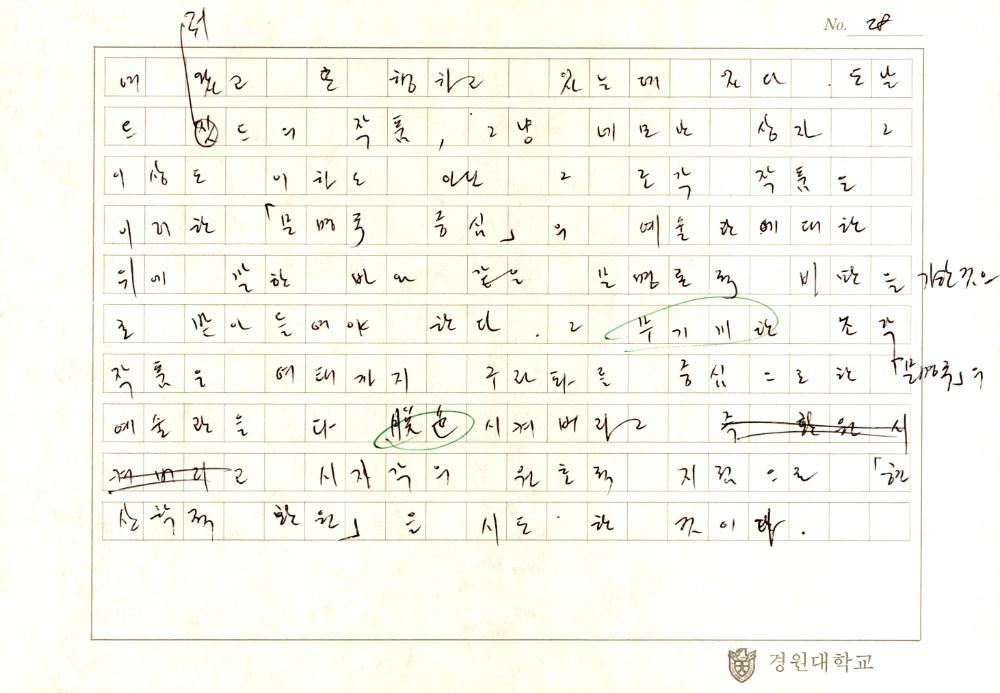 No. 28
뤄
에 있고 혼 행하고 있는데 있다. 도날
드 짓드의 작품, 그냥 네모난 상자 그
이상도 이하도 아닌 그 조각 작품은
이러한 「문명록 중심」의 예술관에 대한
위에 말한 바와 같은 문명론적 비판을 가한것으
로 받아들여야 한다. 그 무기체한 조각
작품을 여태까지 구라파를 중심으로 한 「문명록」의
예술관을 다 脫色시켜버리고 즉 환원시
켜버리고 시지각의 원초적 지점으로 「현
상학적 환원」을 시도한 것이다.
경원대학교